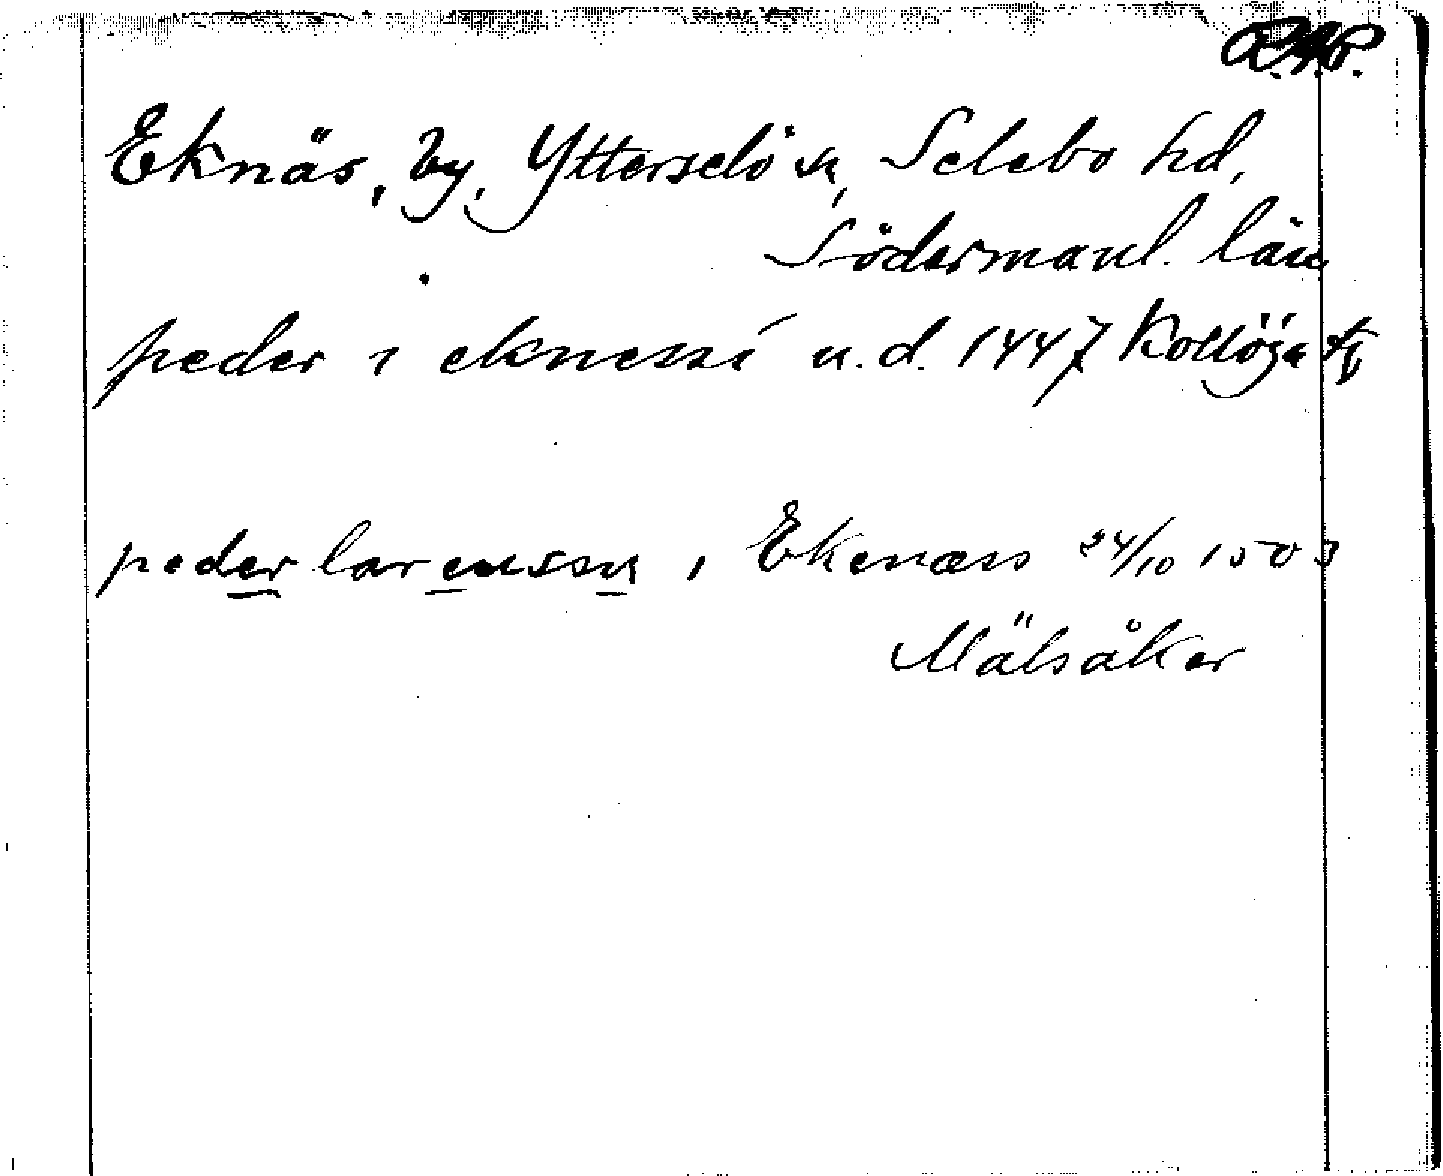 R.A.P.
Eknäs, by, Ytterselö sn, Selebo hd,
Södermanl. län
peder i eknessi u.d. 1447
peder larensson i Ekenæss 24/10 1503
Mälsåker